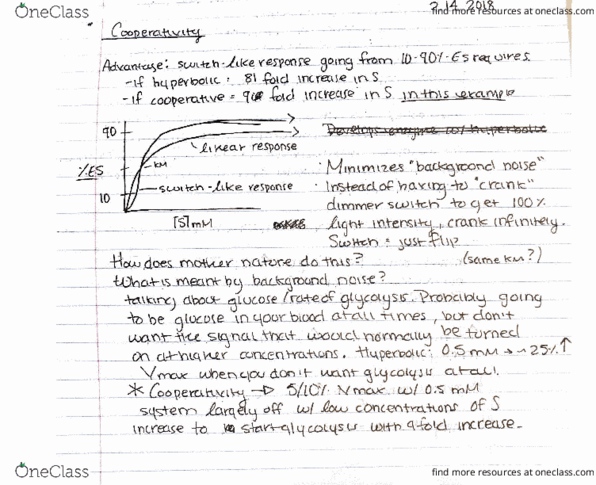 OneClass
2.14.2018
find more resources at oneclass.com
Cooperativity
Advantage: switch-like response going from 10-90% ES requires
- if hyperbolic = 81 fold increase in S
- if cooperative = 9 fold increase in S in this example
90
%ES
10
KM
linear response
switch-like response
[S] mM
Develops enzyme w/ hyperbolic
Minimizes "background noise"
Instead of having to "crank"
dimmer switch to get 100%
light intensity, crank infinitely.
Switch = just flip
(same KM?)
How does mother nature do this?
What is meant by background noise?
talking about glucose / rate of glycolysis. Probably going
to be glucose in your blood at all times, but don't
want the signal that would normally be turned
on at higher concentrations. Hyperbolic: 0.5 mM → ~25% ↑
Vmax when you don't want glycolysis at all.
* Cooperativity → 5/10% Vmax w/ 0.5 mM
system largely off w/ low concentrations of S
increase to start glycolysis with 9 fold increase.
OneClass
find more resources at oneclass.com